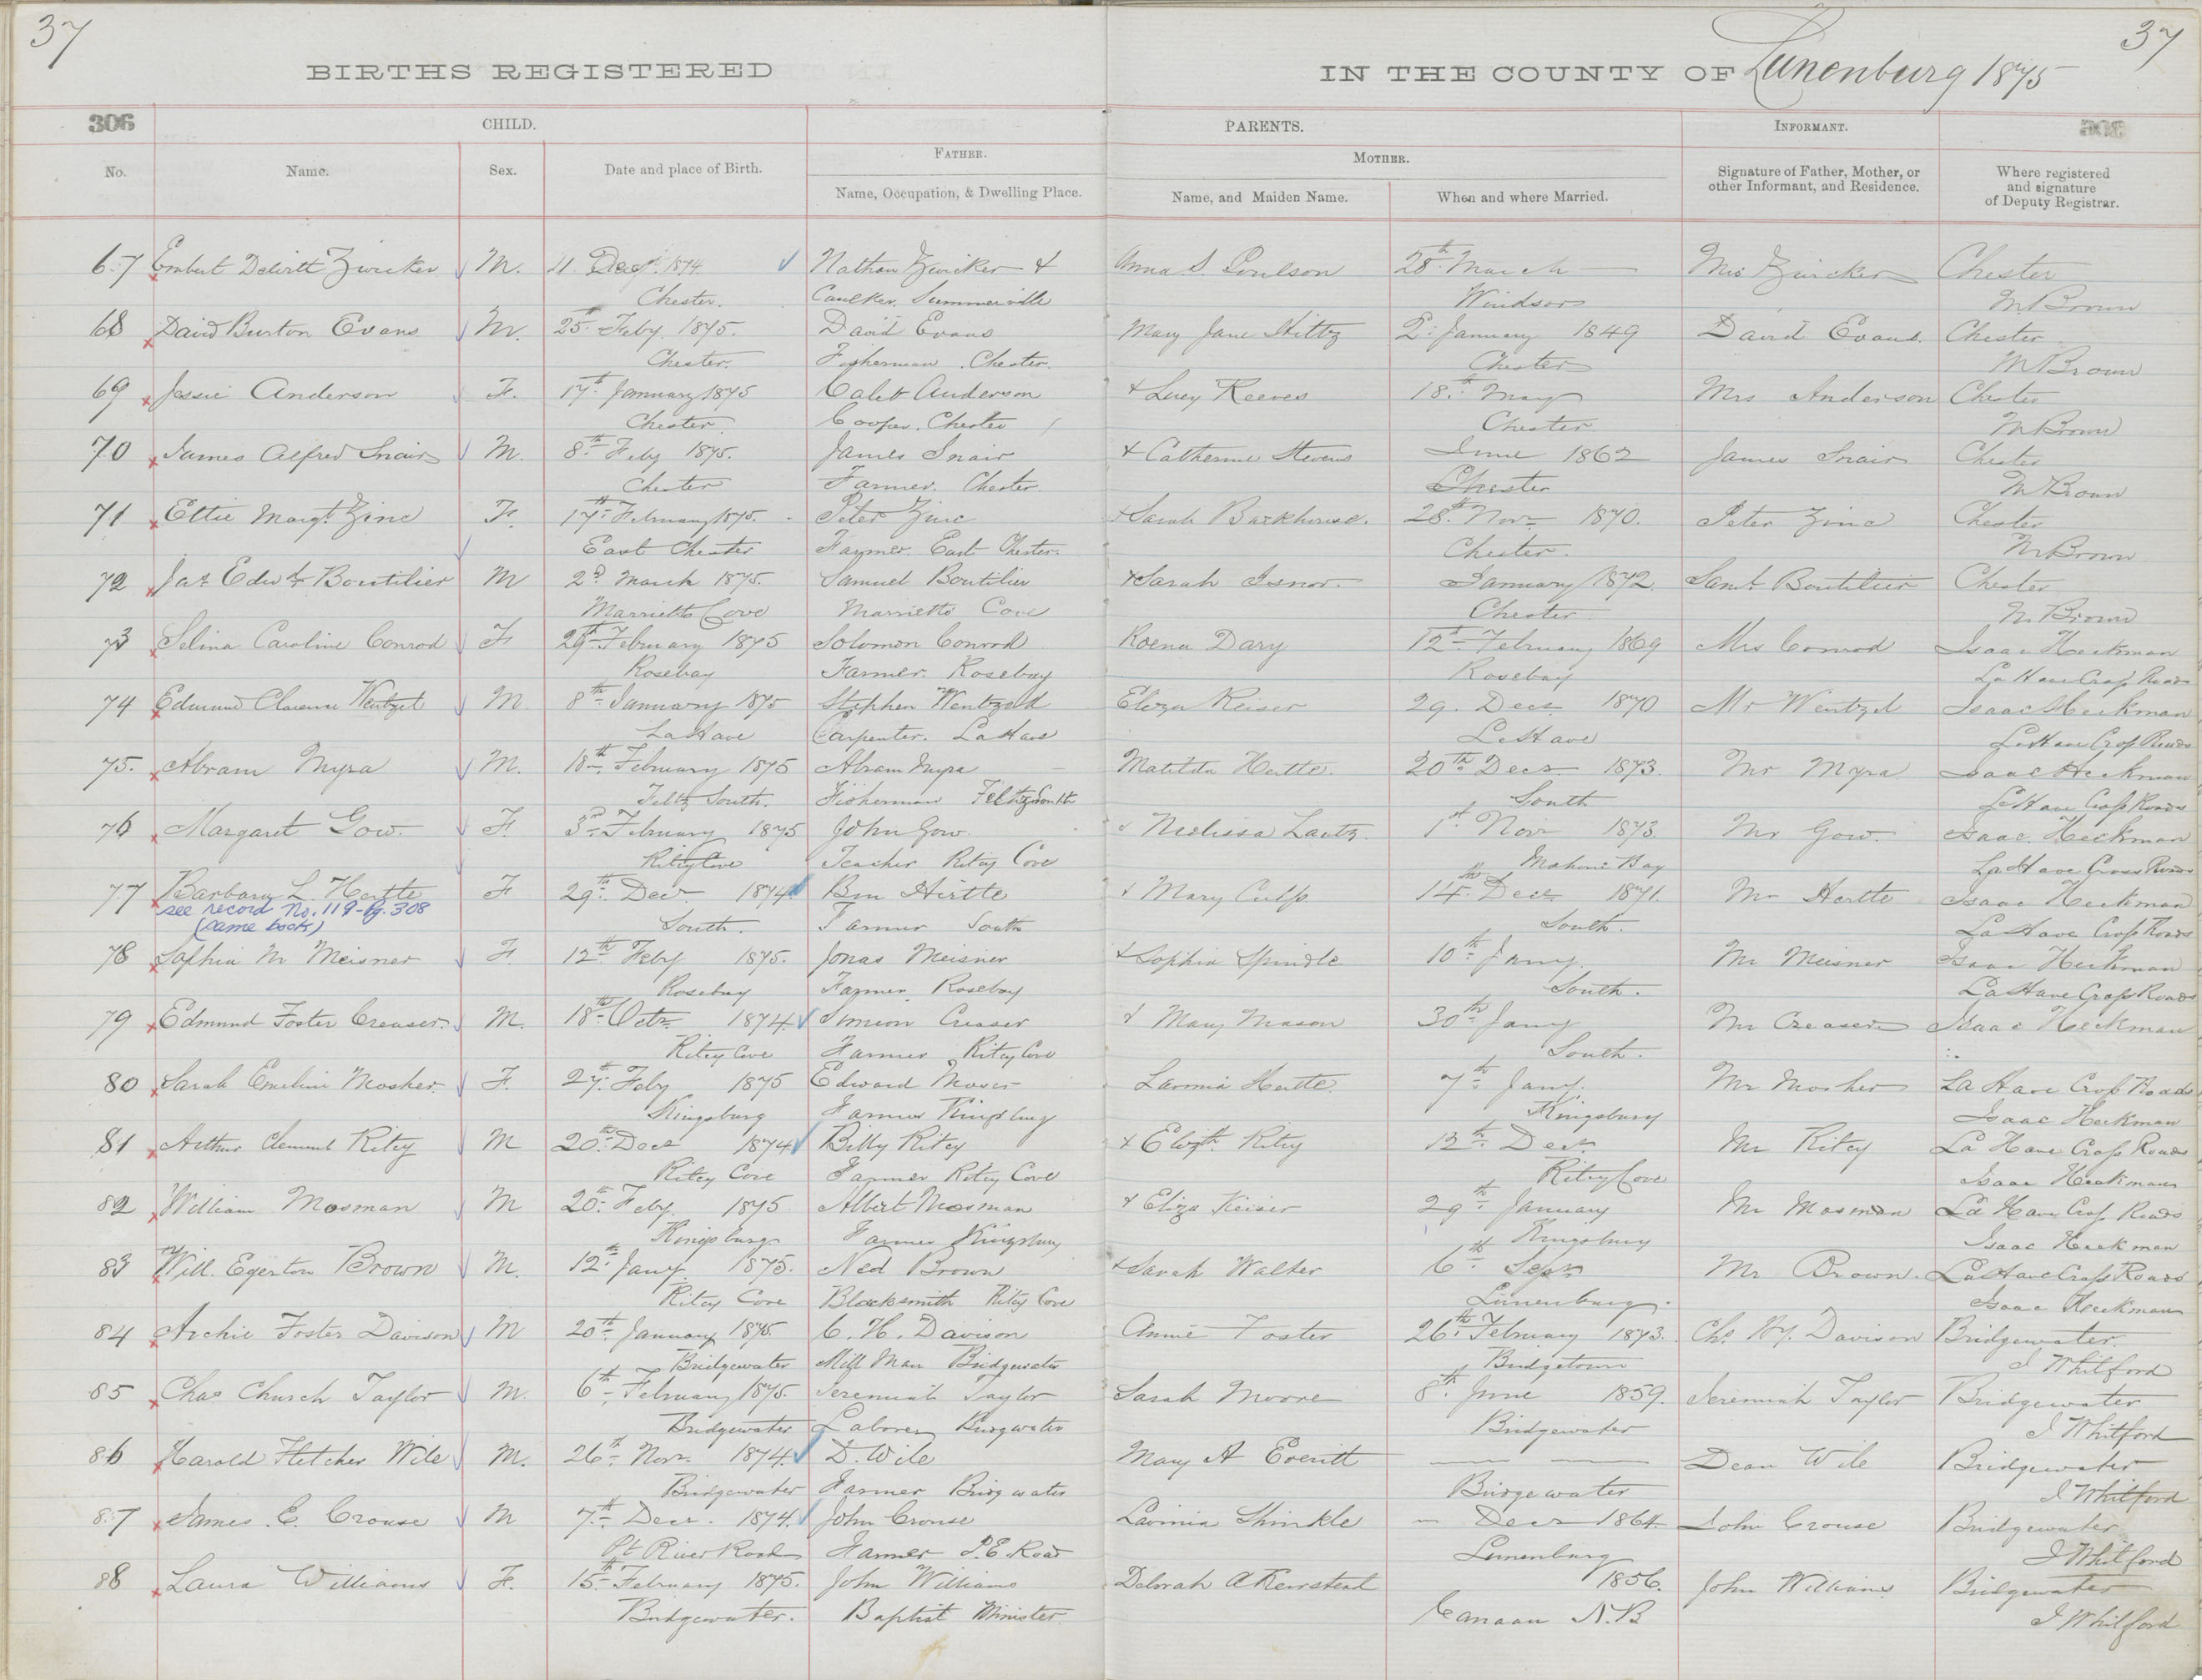 37
37
BIRTHS REGISTERED
IN THE COUNTY OF Lunenburg 1875
306
CHILD.
PARENTS.
INFORMANT.
No.
Name.
Sex.
Date and place of Birth.
FATHER.
Name, Occupation, & Dwelling Place.
MOTHER.
Name, and Maiden Name.
When and where Married.
Signature of Father, Mother, or
other Informant, and Residence.
Where registered
and signature
of Deputy Registrar.
67 Embert Dewitt Zwicker M. 11 1874 Nathan Zwicker + Anna S. Poulson 28th March — Mrs Zwicker Chester
Chester. Caulker. Summerville Windsor M Brown
68 David Burton Evans M. 25th Feby. 1875. David Evans Mary Jane Hiltz 2: January 1849 David Evans. Chester
Chester. Fisherman. Chester. Chester M Brown
69 Jessie Anderson F. 17th January 1875 Caleb Anderson + Lucy Reeves 18th May Mrs Anderson Chester
Chester. Cooper. Chester Chester M Brown
70 James Alfred Snair M. 8th Feby 1875. James Snair + Catherine Stevens June 1862 James Snair Chester
Chester Farmer. Chester. Chester M Brown
71 Ettie Margt. Zinc F. 17th February 1875. Peter Zinc + Sarah Backhouse. 28th Novr 1870. Peter Zinc Chester
East Chester Farmer. East Chester. Chester. M Brown
72 Jas Edwd Boutilier M 2d March 1875. Samuel Boutilier + Sarah Isnor. January 1872. Saml. Boutilier Chester
Marriotts Cove Marriotts Cove Chester M Brown
73 Selina Caroline Conrod F 29th February 1875 Solomon Conrod Roena Dary 12th February 1869 Mrs Conrod Isaac Heckman
Rosebay Farmer. Rosebay Rosebay LaHave Cross Roads
74 Edmund Clarence Wentzel M 8th January 1875 Stephen Wentzell Eliza Keiser 29. Decr 1870 Mr Wentzel Isaac Heckman
LaHave Carpenter. LaHave LaHave LaHave Cross Roads
75. Abram Myra M. 18th February 1875 Abram Myra Matilda Hertle. 20th Decr 1873. Mr Myra Isaac Heckman
Feltz South. Fisherman Feltz South South LaHave Cross Roads
76 Margaret Gow. F. 3rd February 1875 John Gow Melissa Lantz 1st Novr 1873. Mr Gow Isaac Heckman
Ritcy Cove Teacher Ritcy Cove Mahone Bay LaHave Cross Roads
77 Barbary L. Hertle F 29th Decr 1874 Ben Hirtle + Mary Culp 14th Decr 1871. Mr Hertle Isaac Heckman
see record No. 119-Pg. 308
(same book)
South. Farmer South South. LaHave Cross Roads
78 Sophia M Meisner F. 12th Feby 1875. Jonas Meisner + Sophia Spindle 10th Jany Mr Meisner Isaac Heckman
Rosebay Farmer Rosebay South. LaHave Cross Roads
79 Edmund Foster Creaser. M. 18th Octr 1874 Simeon Creaser + Mary Mason 30th Jany Mr Creaser Isaac Heckman
Ritcy Cove Farmer Ritcy Cove South.
80 Sarah Emeline Mosher. F. 27th Feby 1875 Edward Moser Lavinia Hertle 7th Jany. Mr Mosher La Have Cross Roads
Kingsburg Farmer Kingsburg Kingsburg Isaac Heckman
81 Arthur Clement Ritcy M 20th Decr 1874 Billy Ritcy + Elizth. Ritcy 13th Decr Mr Ritcy La Have Cross Roads
Ritcy Cove Farmer Ritcy Cove Ritcy Cove Isaac Heckman
82 William Mosman M 20th Feby. 1875 Albert Mosman + Eliza Keiser 29th January Mr Mosman La Have Cross Roads
Kingsburg Farmer Kingsburg Kingsburg Isaac Heckman
83 Will. Egerton Brown M. 12th Jany. 1875. Ned Brown + Sarah Walter 6th Septr Mr Brown. LaHave Cross Roads
Ritcy Cove Blacksmith Ritcy Cove Lunenburg. Isaac Heckman
84 Archie Foster Davison M 20th January 1875. C. H. Davison Annie Foster 26th February 1873. Chs Hy. Davison Bridgewater.
Bridgewater Mill Man Bridgewater Bridgetown J Whitford
85 Chas Church Taylor M. 6th February 1875. Jeremiah Taylor Sarah Moore 8th June 1859. Jeremiah Taylor Bridgewater
Bridgewater Laborer Bridgwater Bridgewater J Whitford
86 Harold Fletcher Wile M. 26th Novr. 1874. D. Wile Mary A Everitt — — Dean Wile Bridgewater
Bridgewater Farmer Bridgwater Bridgewater J Whitford
87 James E. Crouse M 7th Decr. 1874. John Crouse Lavinia Hinkle — Decr 1864. John Crouse Bridgewater
Pt River Road Farmer P.E. Road Lunenburg J Whitford
88 Laura Williams F. 15th February 1875. John Williams Deborah A Keirstead 1856. John Williams Bridgewater
Bridgewater. Baptist Minister Canaan N.B J Whitford